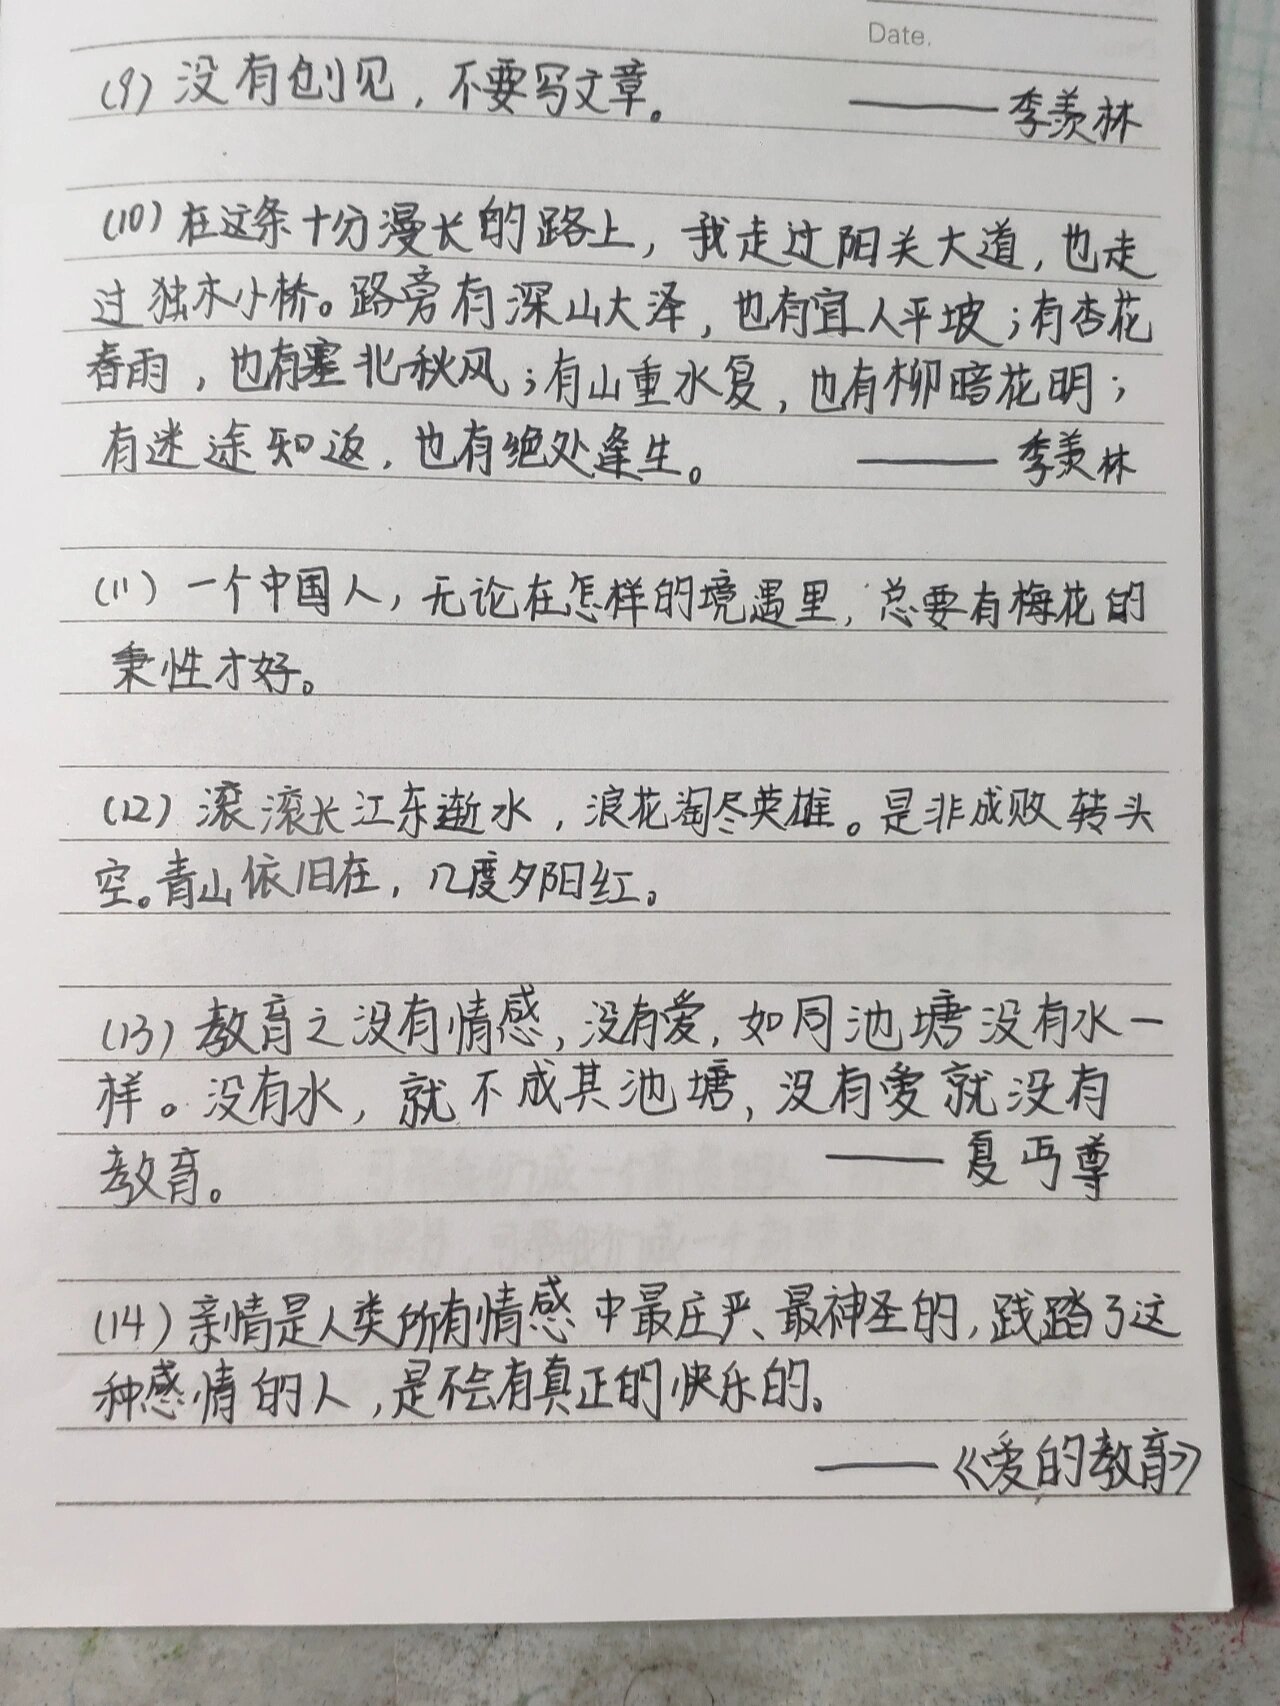 Date.
(9) 没有创见，不要写文章。 ——李羡林
(10) 在这条十分漫长的路上，我走过阳关大道，也走
过独木小桥。路旁有深山大泽，也有宜人平坡；有杏花
春雨，也有塞北秋风；有山重水复，也有柳暗花明；
有迷途知返，也有绝处逢生。 ——季羡林
(11) 一个中国人，无论在怎样的境遇里，总要有梅花的
秉性才好。
(12) 滚滚长江东逝水，浪花淘尽英雄。是非成败转头
空。青山依旧在，几度夕阳红。
(13) 教育之没有情感，没有爱，如同池塘没有水一
样。没有水，就不成其池塘，没有爱就没有
教育。 ——夏丏尊
(14) 亲情是人类所有情感中最庄严、最神圣的，践踏了这
种感情的人，是不会有真正的快乐的。
——《爱的教育》